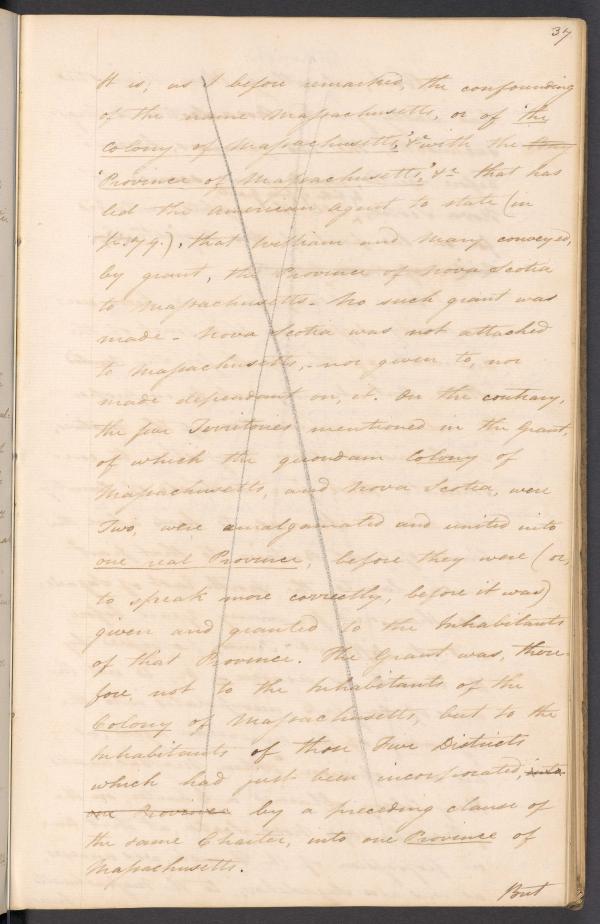 37
It is, as I before remarked, the confounding
of the name Massachusetts, or of 'the
Colony of Massachusetts,' &c with the
'Province of Massachusetts,' &c that has
led the american agent to state (in
that William and Mary conveyed,
by grant, the Province of Nova Scotia
to Massachusetts. No such grant was
made. Nova Scotia was not attached
to Massachusetts, nor given to, nor
made dependant on, it. On the contrary,
the five Territories mentioned in the Grant,
of which the quondam Colony of
Massachusetts, and Nova Scotia, were
Two, were amalgamated and united into
one real Province, before they were (or,
to speak more correctly, before it was)
given and granted to the Inhabitants
of that Province. The Grant was, there-
fore, not to the Inhabitants of the
Colony of Massachusetts, but to the
Inhabitants of those Five Districts
which had just been incorporated, into
one Province by a preceding clause of
the same Charter, into one Province of
Massachusetts.
But